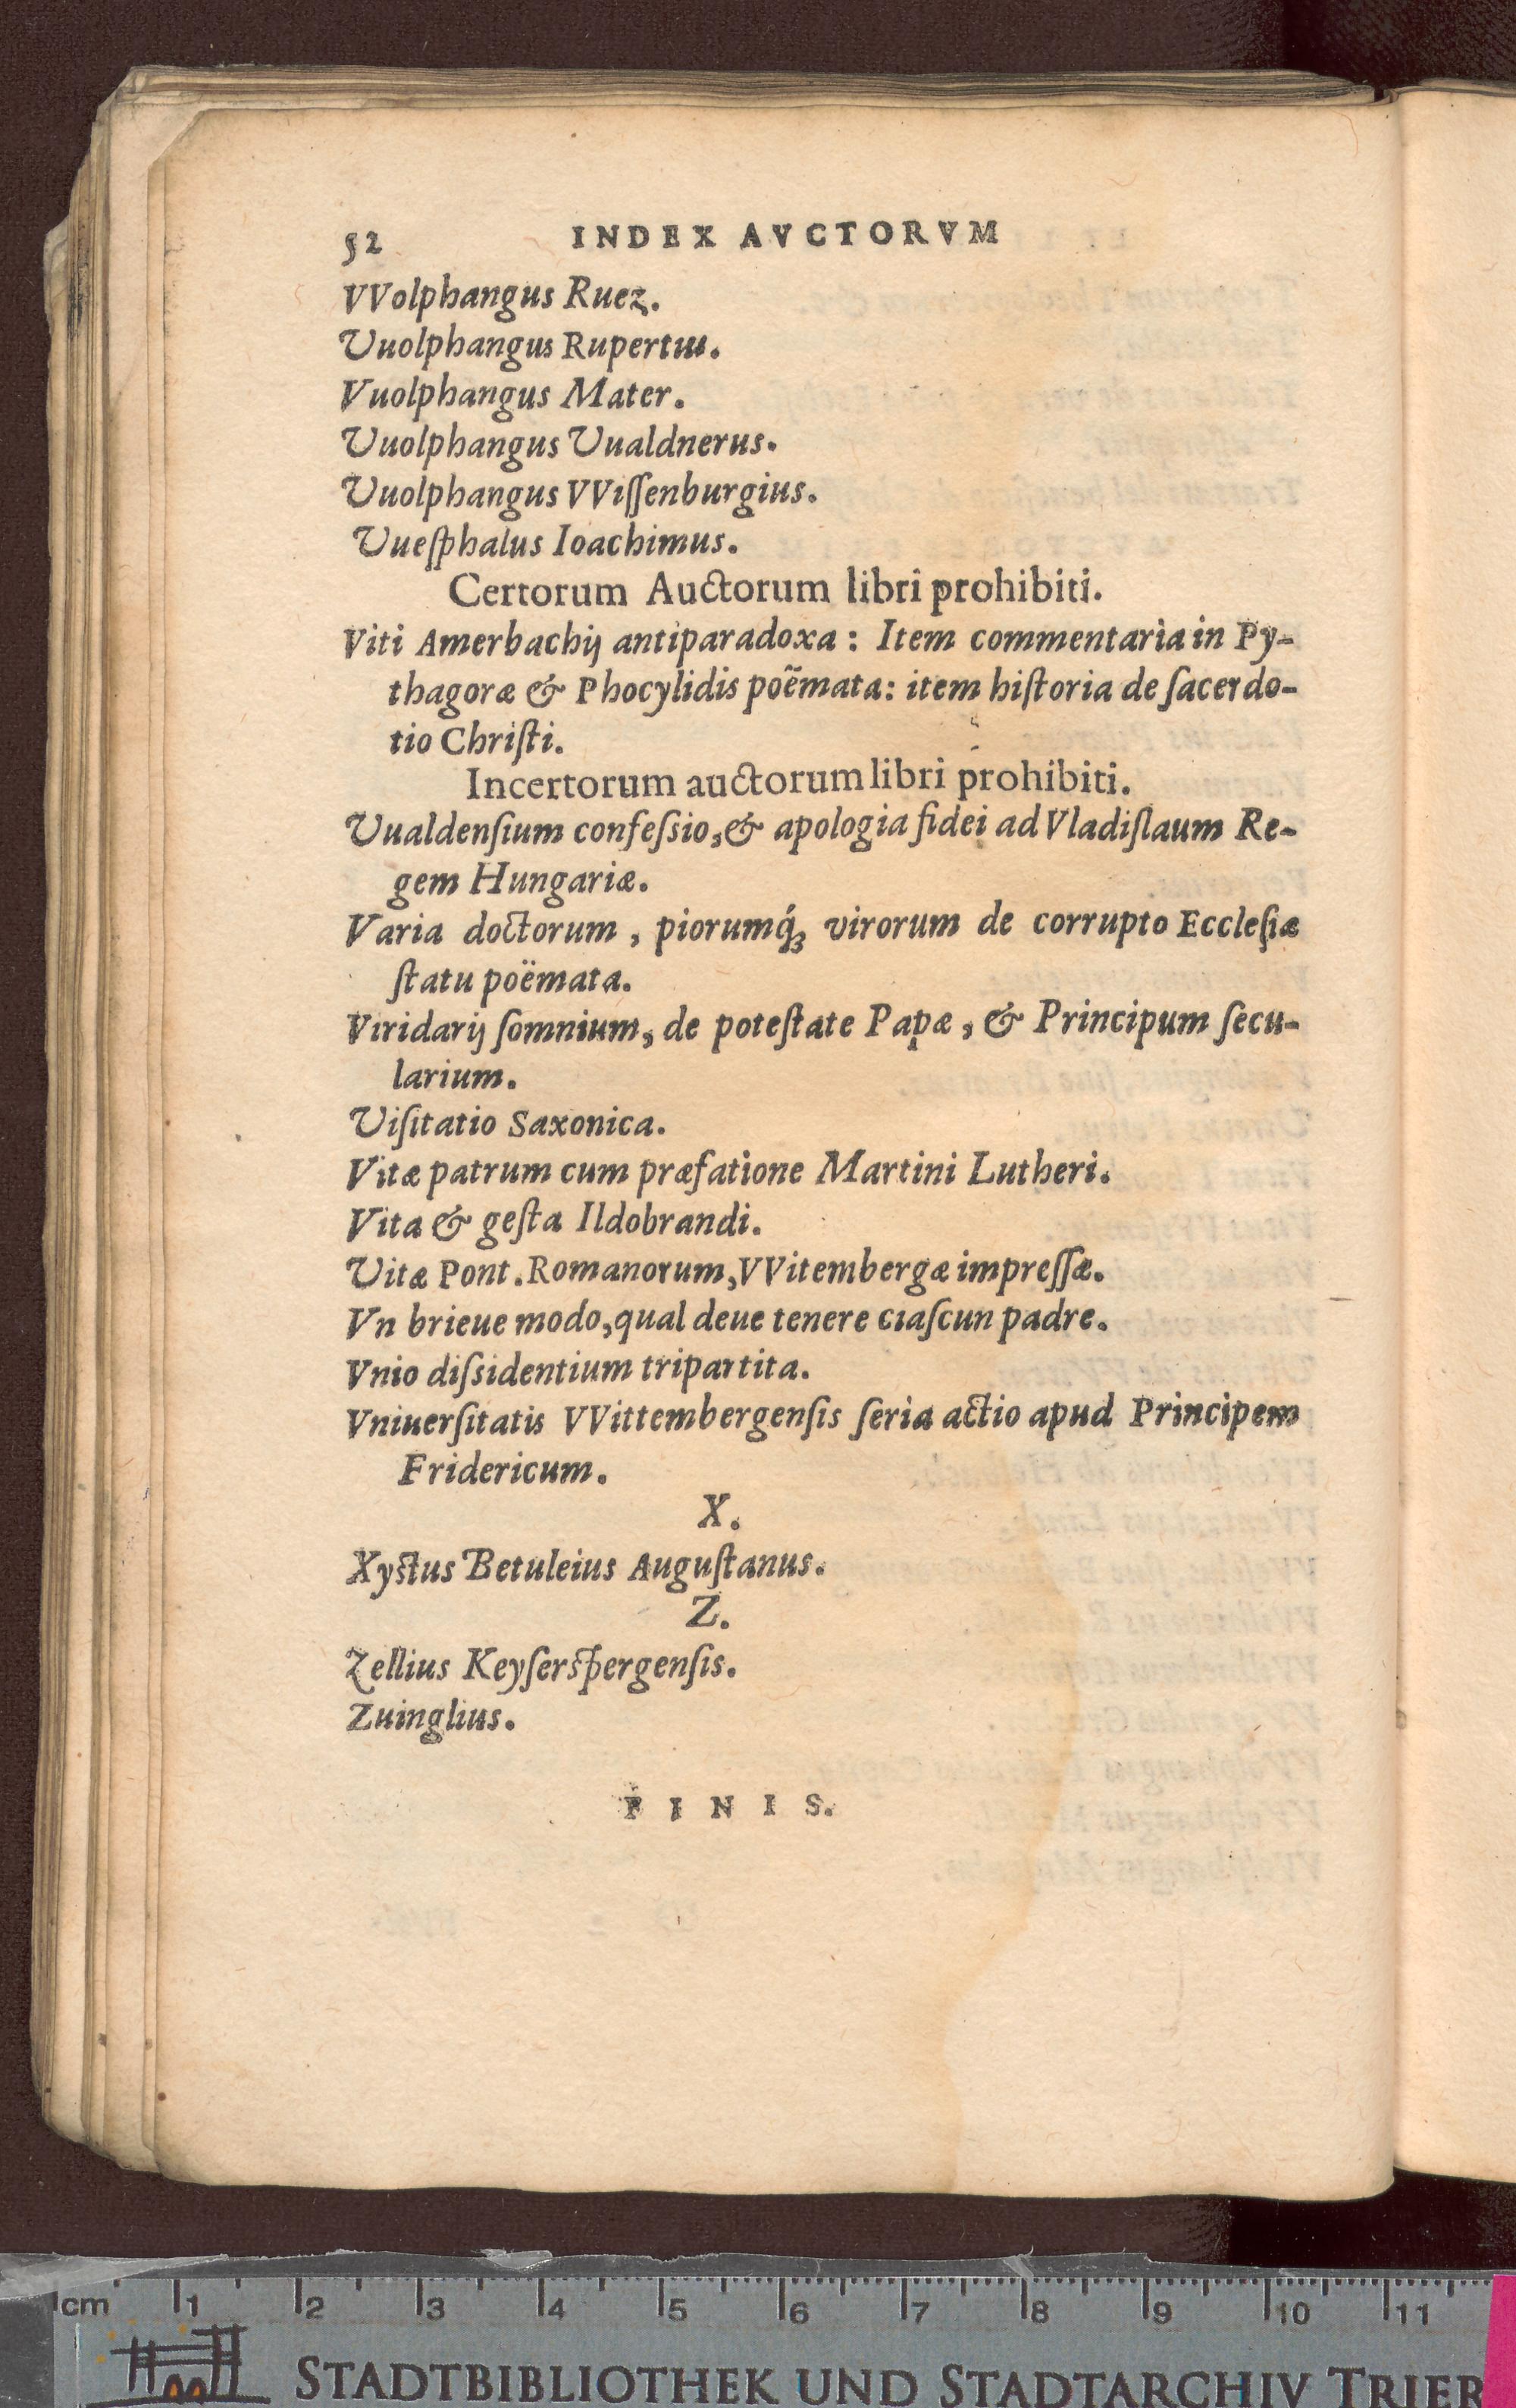 52 INDEX AVCTORVM
VVolphangus Ruez.
Vuolphangus Rupertus.
Vuolphangus Mater.
Vuolphangus Vualdnerus.
Vuolphangus VViſſenburgius.
Vueſphalus Ioachimus.
Certorum Auctorum libri prohibiti.
Viti Amerbachij antiparadoxa: Item commentaria in Py-
thagoræ & Phocylidis poëmata: item hiſtoria de ſacerdo-
tio Chriſti.
Incertorum auctorum libri prohibiti.
Vualdenſium confeſsio, & apologia fidei ad Vladiſlaum Re-
gem Hungariæ.
Varia doctorum, piorumq́ꝫ virorum de corrupto Eccleſiæ
ſtatu poëmata.
Viridarij ſomnium, de poteſtate Papæ, & Principum ſecu-
larium.
Viſitatio Saxonica.
Vitæ patrum cum præfatione Martini Lutheri.
Vita & geſta Ildobrandi.
Vitæ Pont. Romanorum, VVitembergæ impreſſæ.
Vn brieue modo, qual deue tenere ciaſcun padre.
Vnio diſsidentium tripartita.
Vniuerſitatis VVittembergenſis ſeria actio apud Principem
Fridericum.
X.
Xyſtus Betuleius Auguſtanus.
Z.
Zellius Keyſerſpergenſis.
Zuinglius.
FINIS.
cm 1 2 3 4 5 6 7 8 9 10 11
STADTBIBLIOTHEK UND STADTARCHIV TRIER